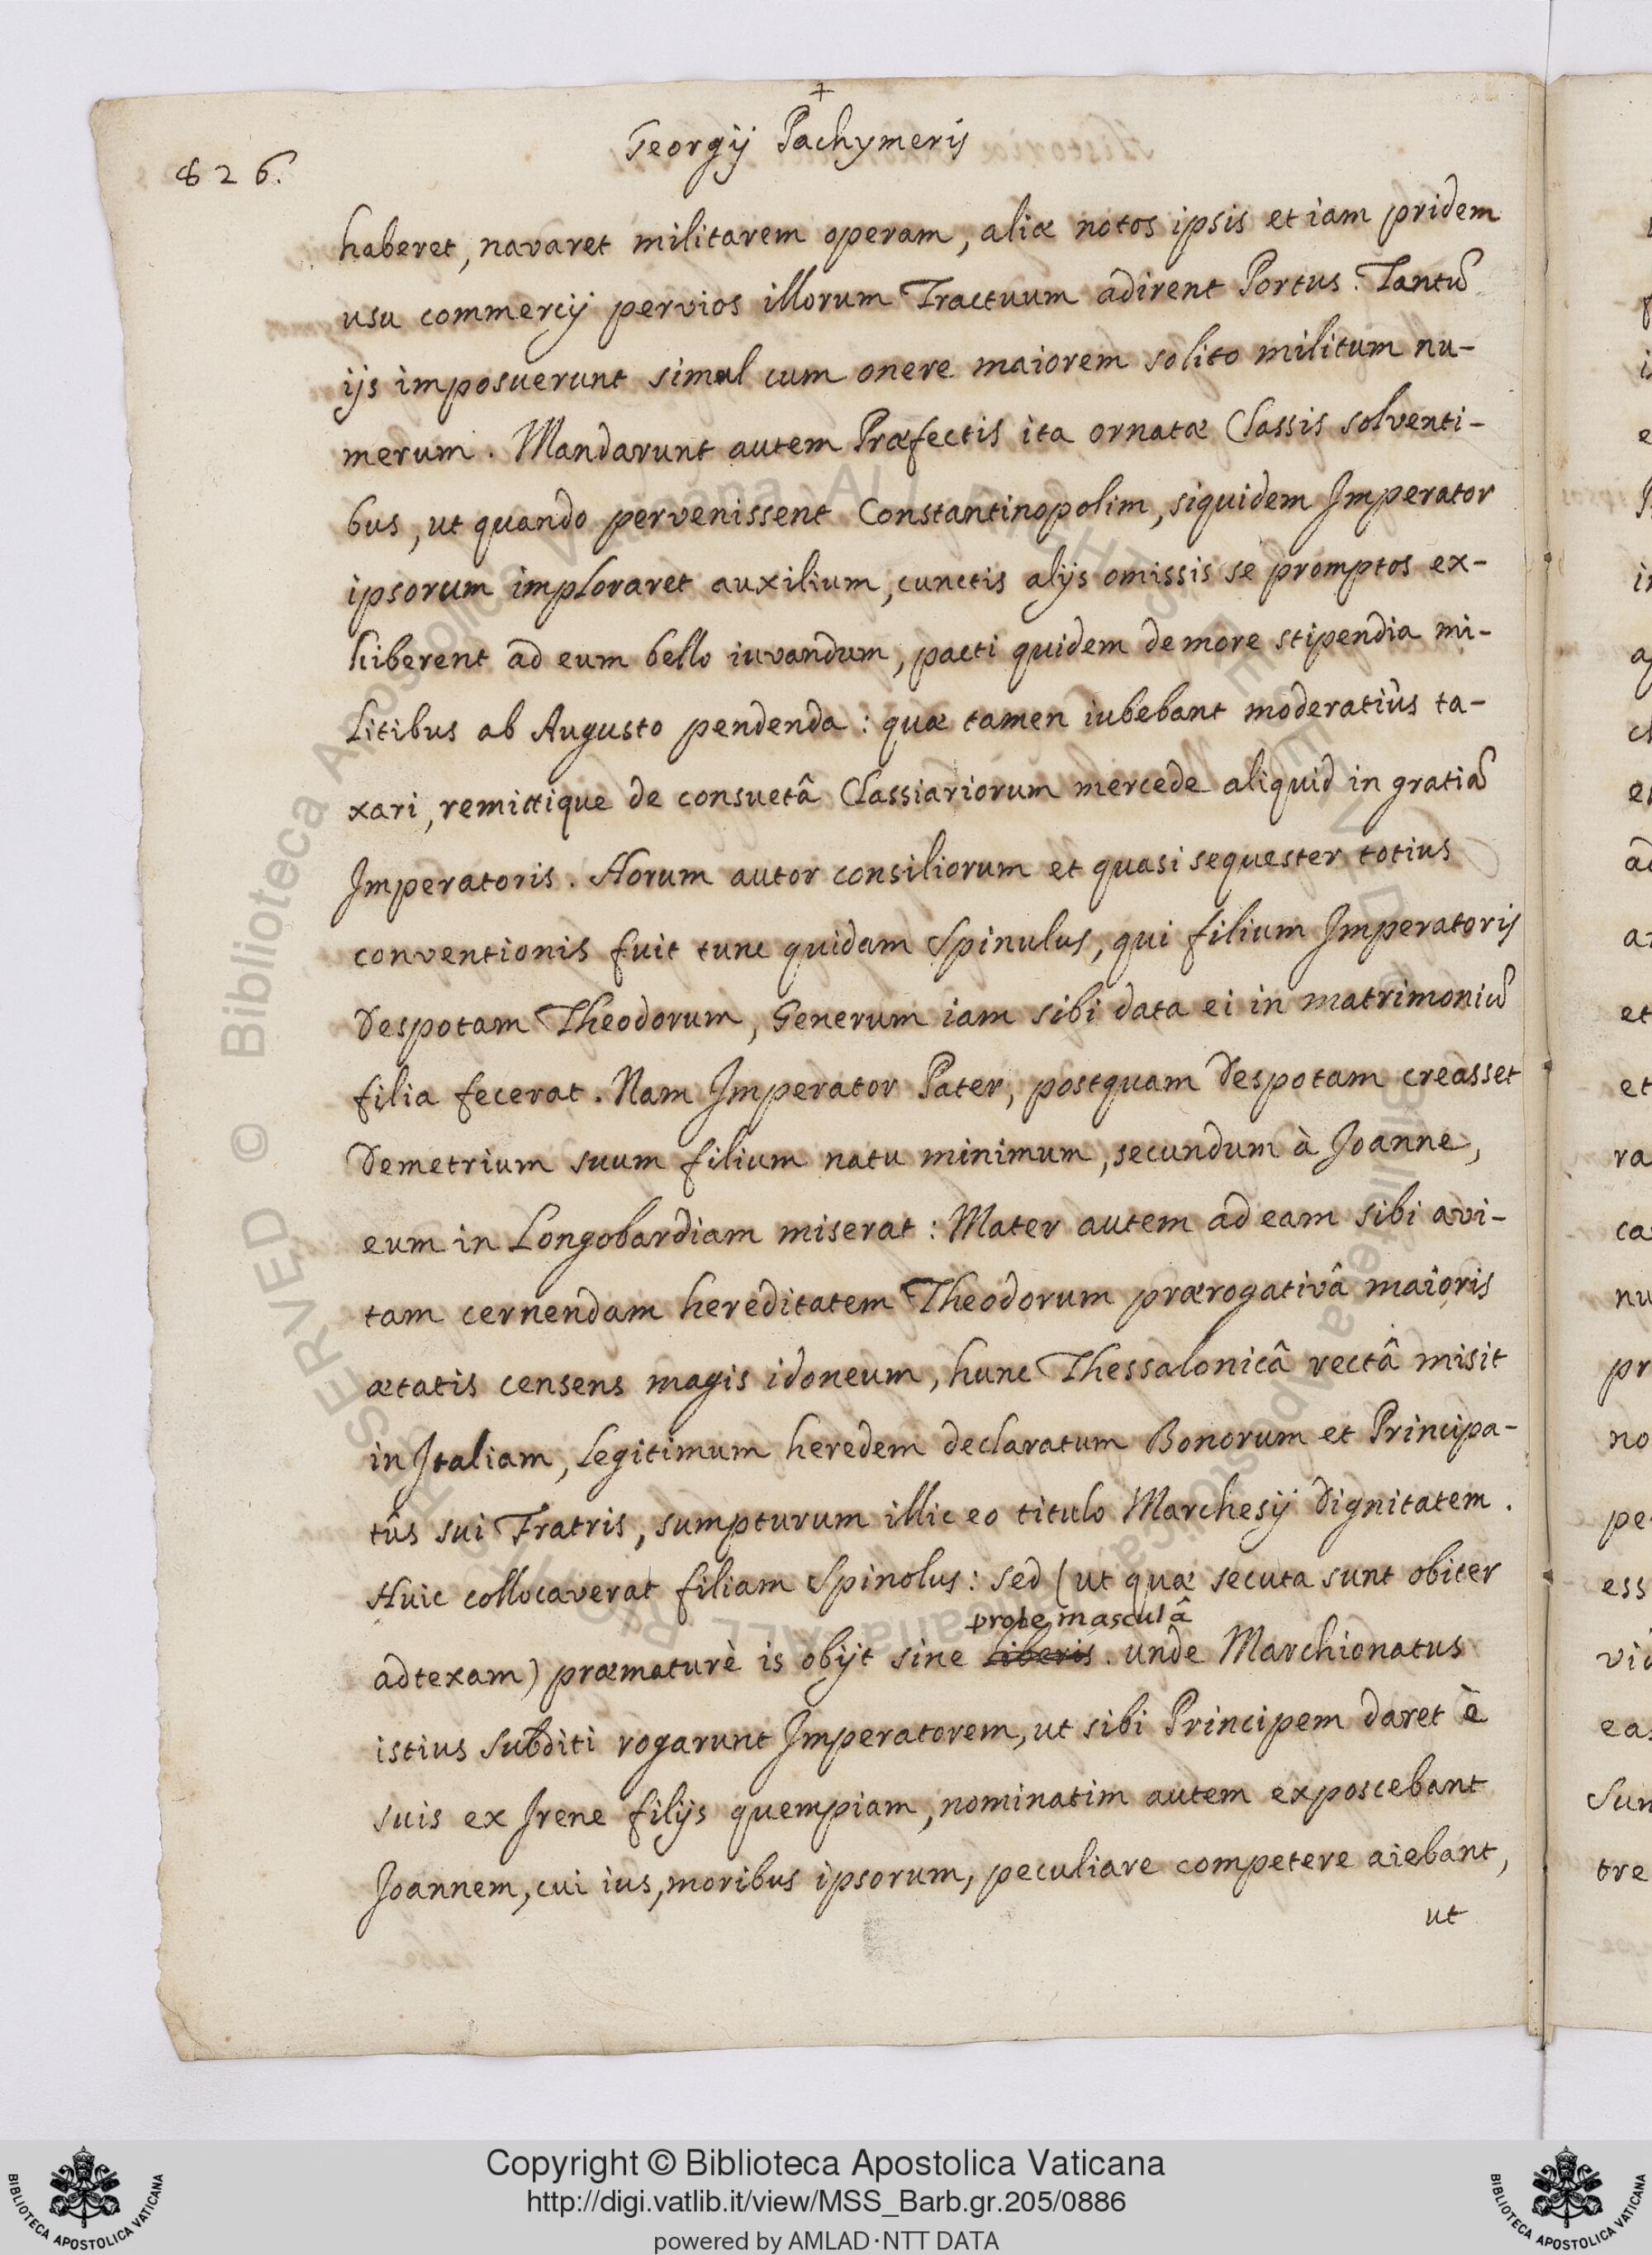 +
Georgij Pachymeris
826.
haberet, navaret militarem operam, aliæ notos ipsis et iam pridem
usu commercij pervios illorum Tractuum adirent Portus. Tantũ
ijs imposuerunt simul cum onere maiorem solito militum nu-
merum. Mandarunt autem Præfectis ita ornatæ Classis solventi-
bus, ut quando pervenissent Constantinopolim, siquidem Imperator
ipsorum imploraret auxilium, cunctis alijs omissis se promptos ex-
hiberent ad eum bello iuvandum, pacti quidem de more stipendia mi-
litibus ab Augusto pendenda: quæ tamen iubebant moderatiùs ta-
xari, remittique de consuetâ Classiariorum mercede aliquid in gratiã
Imperatoris. Horum autor consiliorum et quasi sequester totius
conventionis fuit tunc quidam Spinulus, qui filium Imperatoris
Despotam Theodorum, Generum iam sibi data ei in matrimoniũ
filia fecerat. Nam Imperator Pater, postquam Despotam creasset
Demetrium suum filium natu minimum, secundum à Joanne,
eum in Longobardiam miserat: Mater autem ad eam sibi avi-
tam cernendam hereditatem Theodorum prærogativâ maioris
ætatis censens magis idoneum, hunc Thessalonicâ rectâ misit
in Italiam, legitimum heredem declaratum Bonorum et Principa-
tûs sui Fratris, sumpturum illic eo titulo Marchesij dignitatem.
Huic collocaverat filiam Spinolus: sed (ut quæ secuta sunt obiter
prole masculâ
adtexam) præmaturè is obijt sine liberis. unde Marchionatus
istius subditi rogarunt Imperatorem, ut sibi Principem daret è
suis ex Irene filijs quempiam, nominatim autem exposcebant
Joannem, cui ius, moribus ipsorum, peculiare competere aiebant,
ut
Copyright © Biblioteca Apostolica Vaticana
http://digi.vatlib.it/view/MSS_Barb.gr.205/0886
powered by AMLAD·NTT DATA
BIBLIOTECA APOSTOLICA VATICANA
BIBLIOTECA APOSTOLICA VATICANA